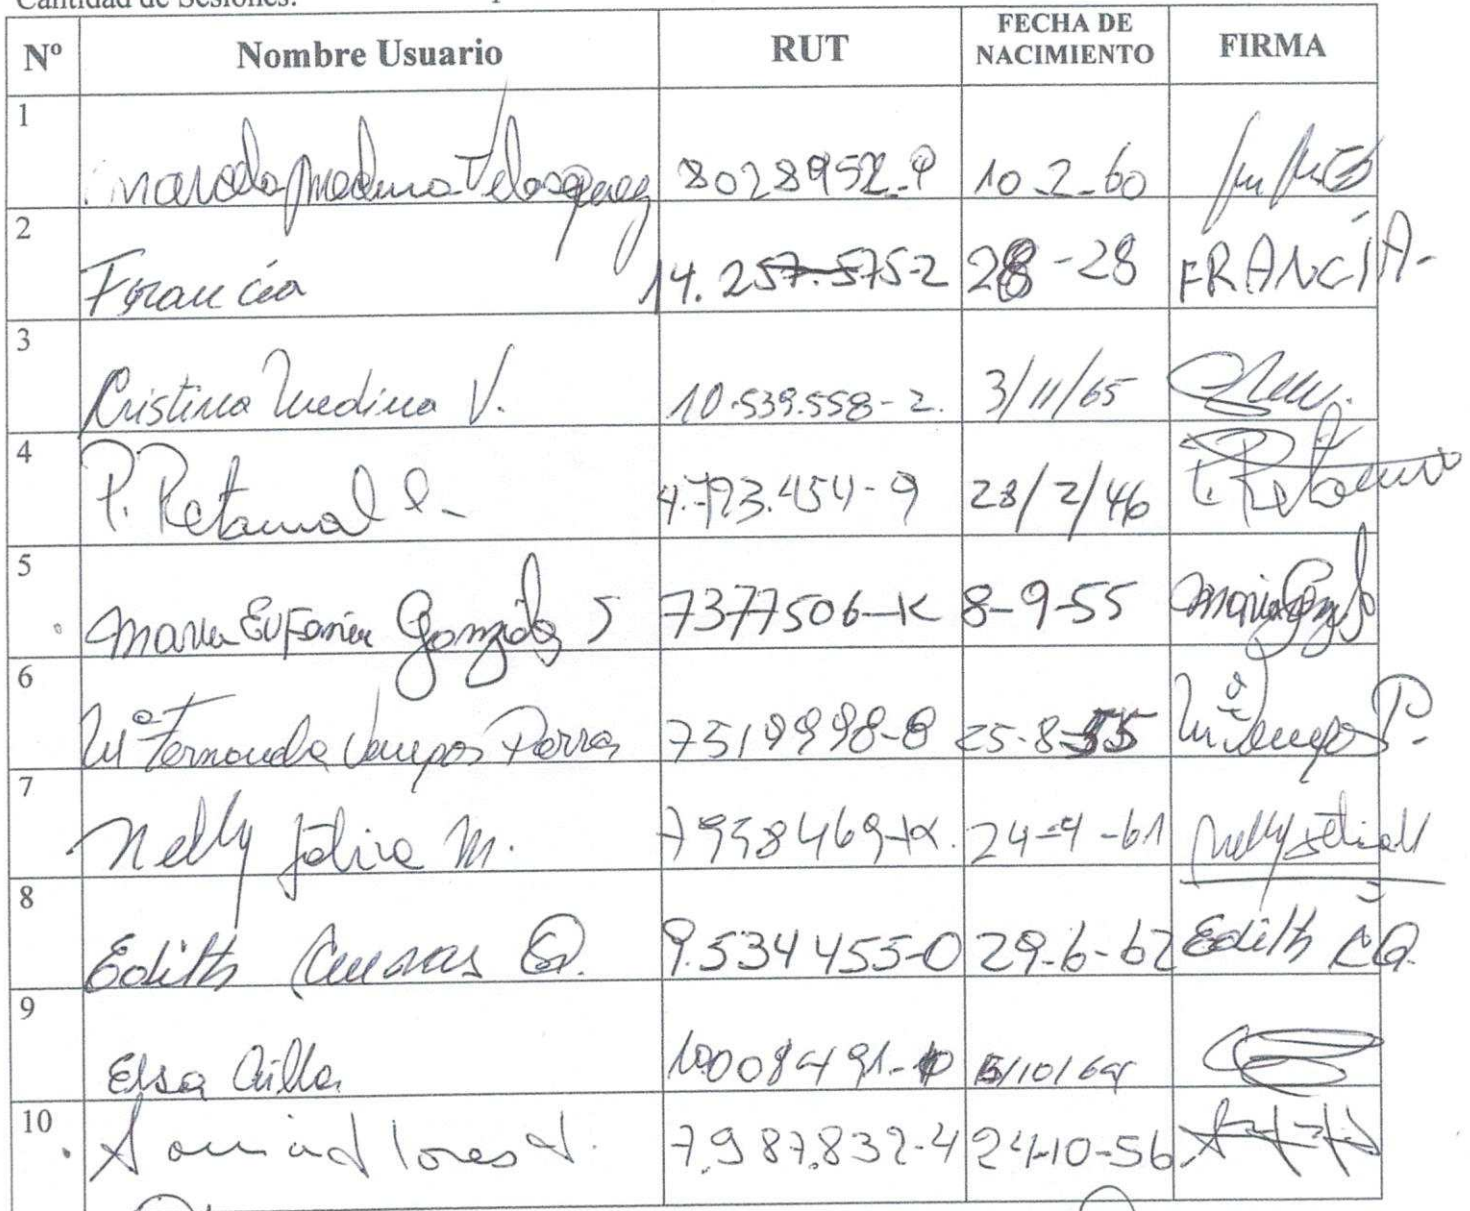 Cantidad de Sesiones:
Nº Nombre Usuario RUT FECHA DE NACIMIENTO FIRMA
1 Marcela Medina Velasquez 8028952-9 10-2-60
2 Francia 14.257.575-2 28-28 FRANCIA-
3 Cristina Medina V. 10.539.558-2. 3/11/65
4 P. Retamal P. 4.793.454-9 28/2/46 P. Retamal
5 Maria Eufemia González S 7377506-K 8-9-55 Maria Gonz
6 Mª Fernanda Campos Parra 7519998-8 25-8-55 Mª Campos P.
7 Nelly Jélvez M. 7958469-K. 24-4-61 Nelly
8 Edith Cuevas Q. 9.534455-0 29-6-62 Edith C Q.
9 Elsa 10008491- /10/
10 7.987.832-4 24-10-56